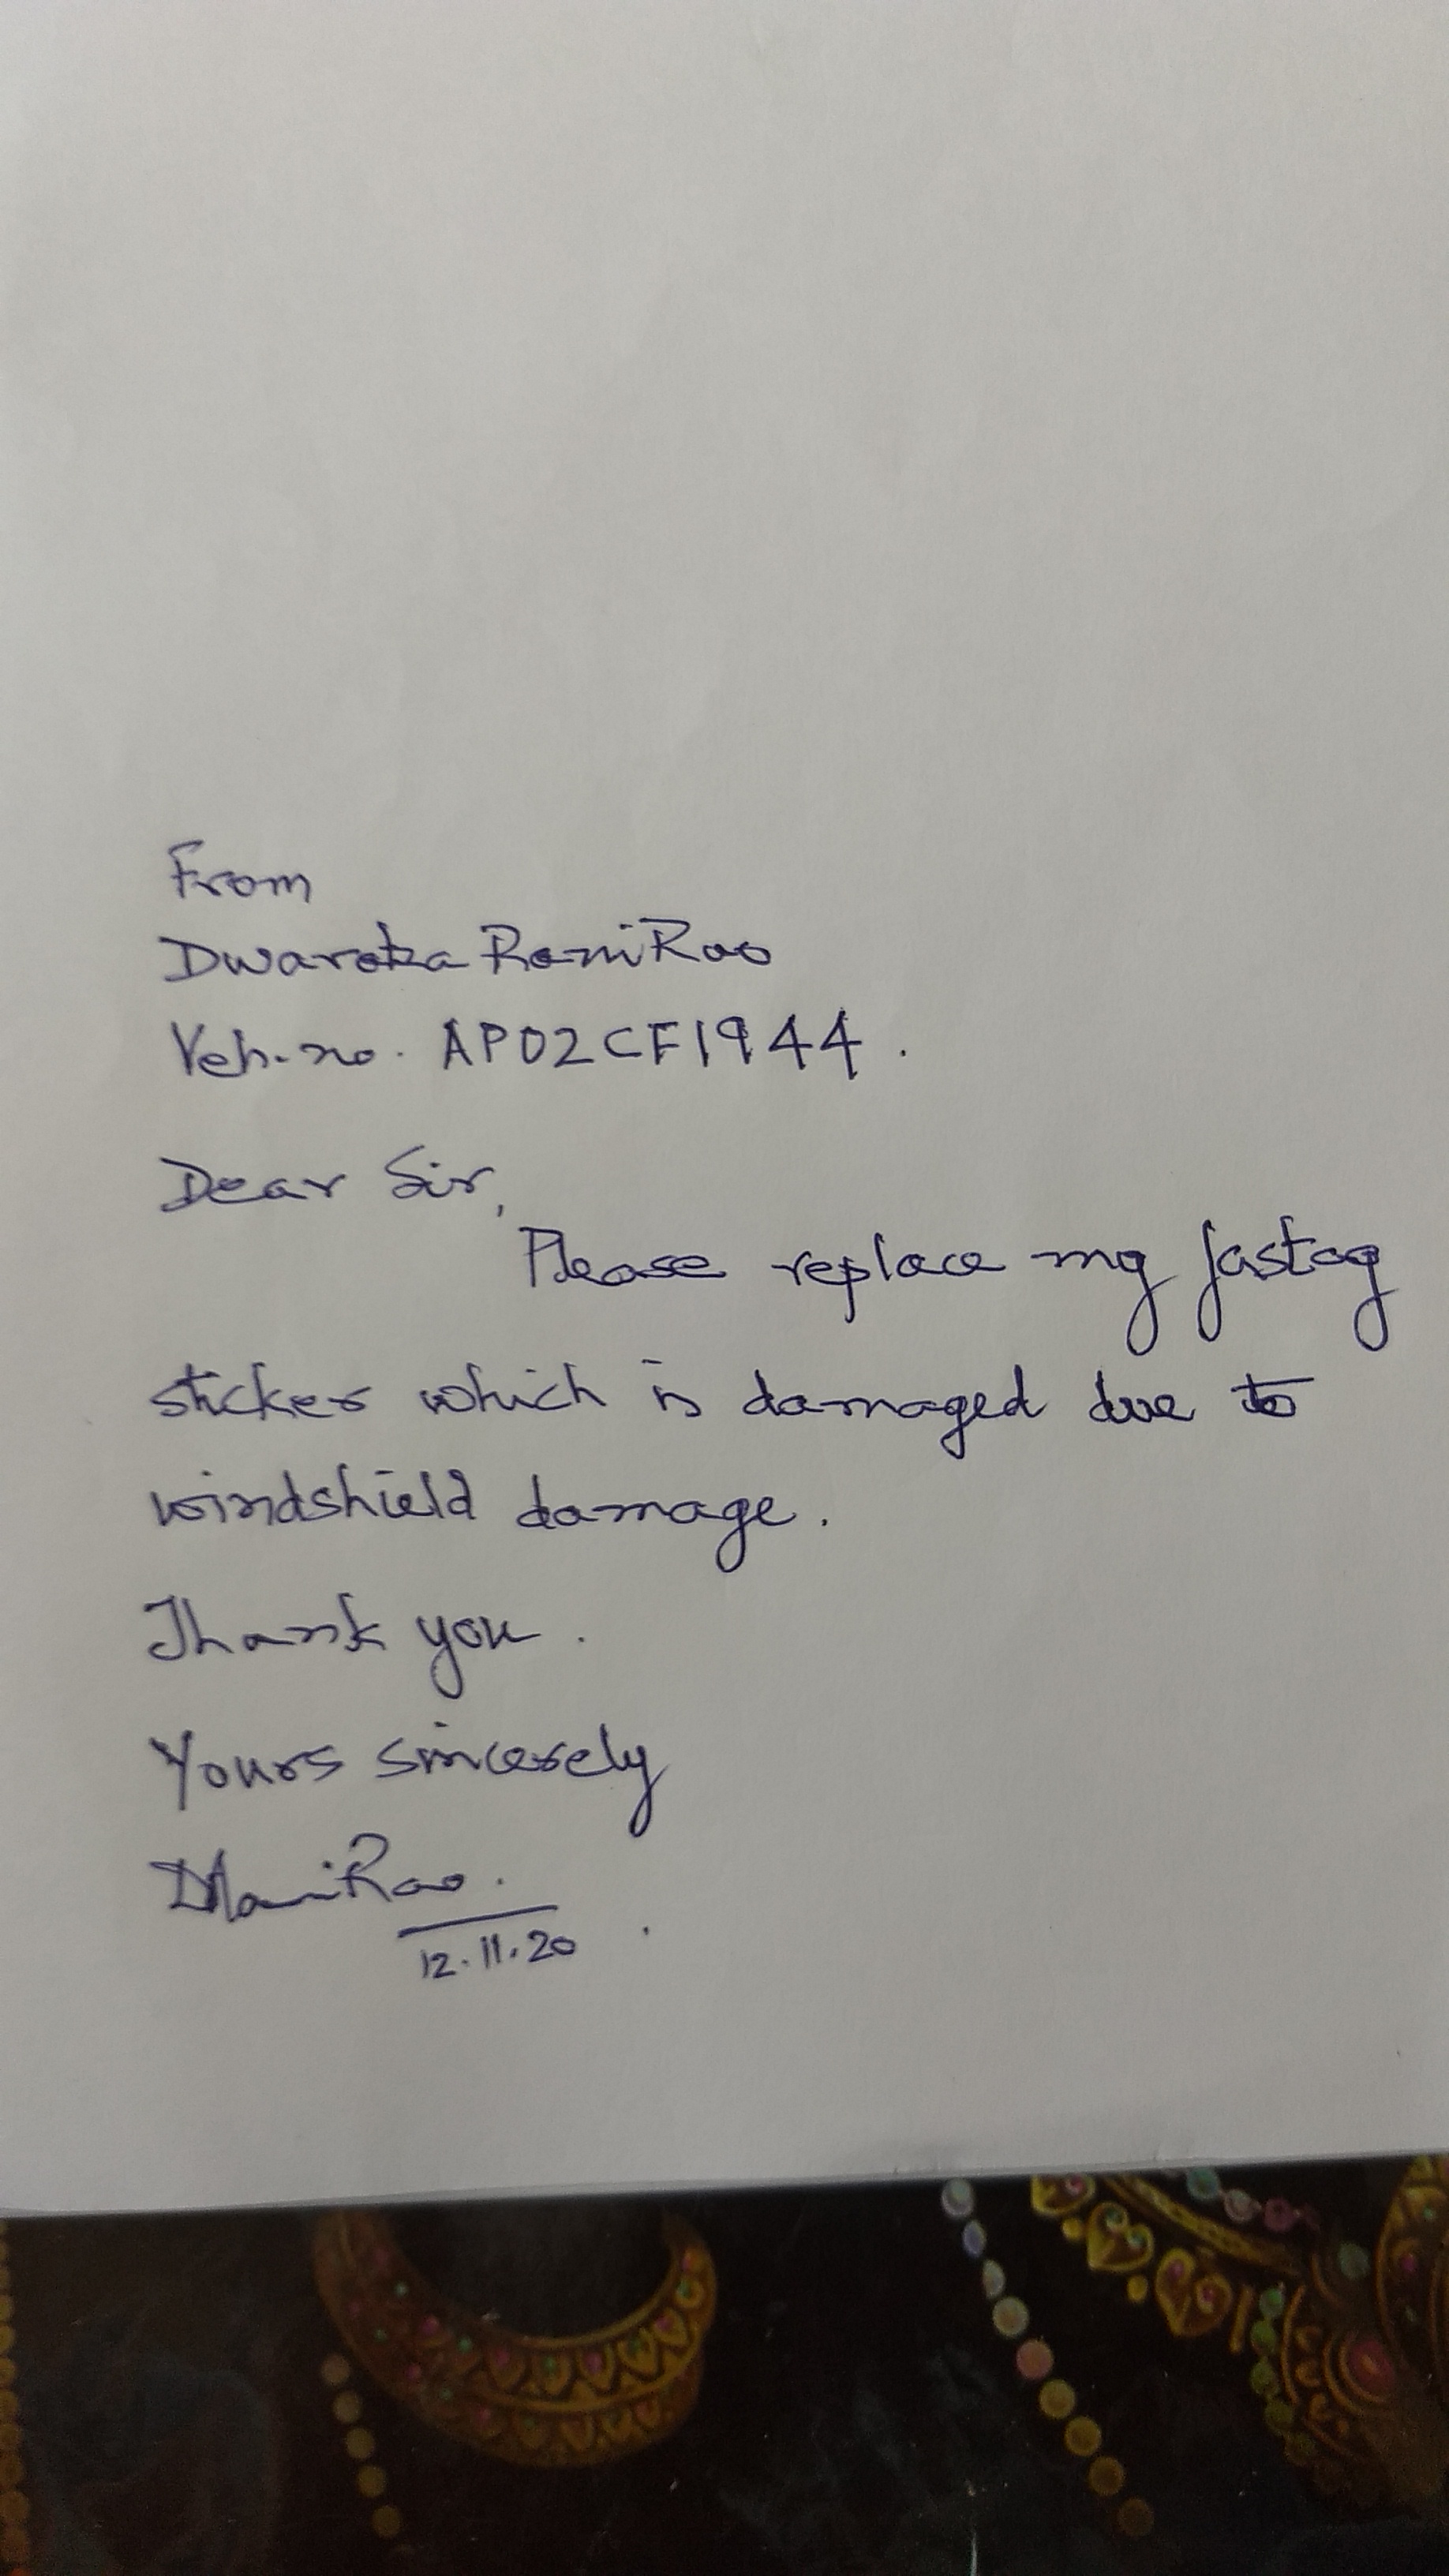 From
Dwaraka Rani Rao
Veh. no. AP02CF1944.
Dear Sir,
Please replace my fastag
sticker which is damaged due to
windshield damage.
Thank you.
Yours sincerely
12.11.20